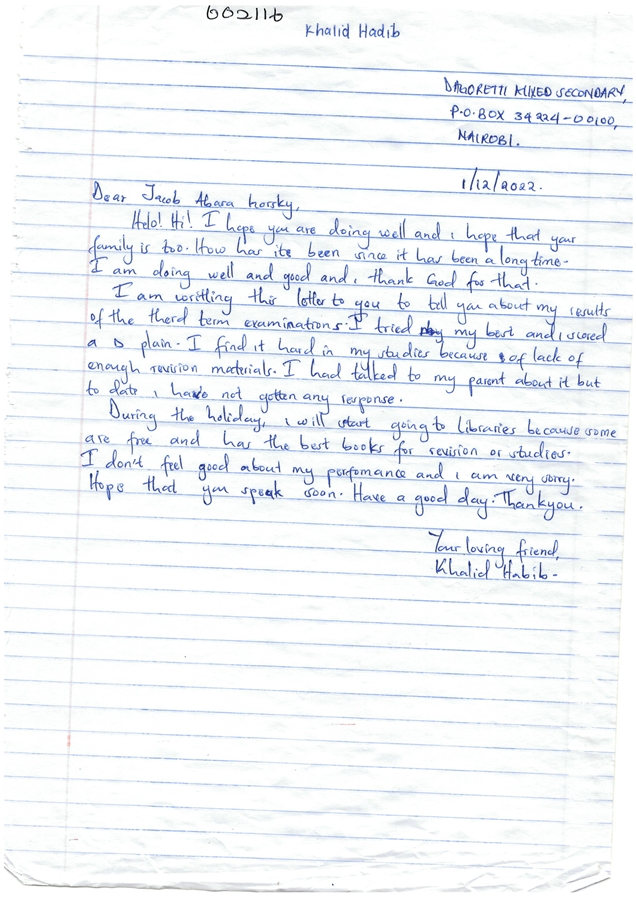 002116
Khalid Hadib
DAGORETTI MIXED SECONDARY,
P.O.BOX 34224-00100,
NAIROBI.
1/12/2022.
Dear Jacob Abara horsky,
Helo! Hi! I hope you are doing well and i hope that your
family is too. How has its been since it has been a long time.
I am doing well and good and i thank God for that.
I am writling this letter to you to tell you about my results
of the therd term examinations. I tried my best and i scored
a D plain. I find it hard in my studies because of lack of
enough revision materials. I had talked to my parent about it but
to date i have not gotten any response.
During the holiday, i will start going to libraries because some
are free and has the best books for revision or studies.
I don't feel good about my perfomance and i am very sorry.
Hope that you speak soon. Have a good day. Thankyou.
Your loving friend,
Khalid Habib-